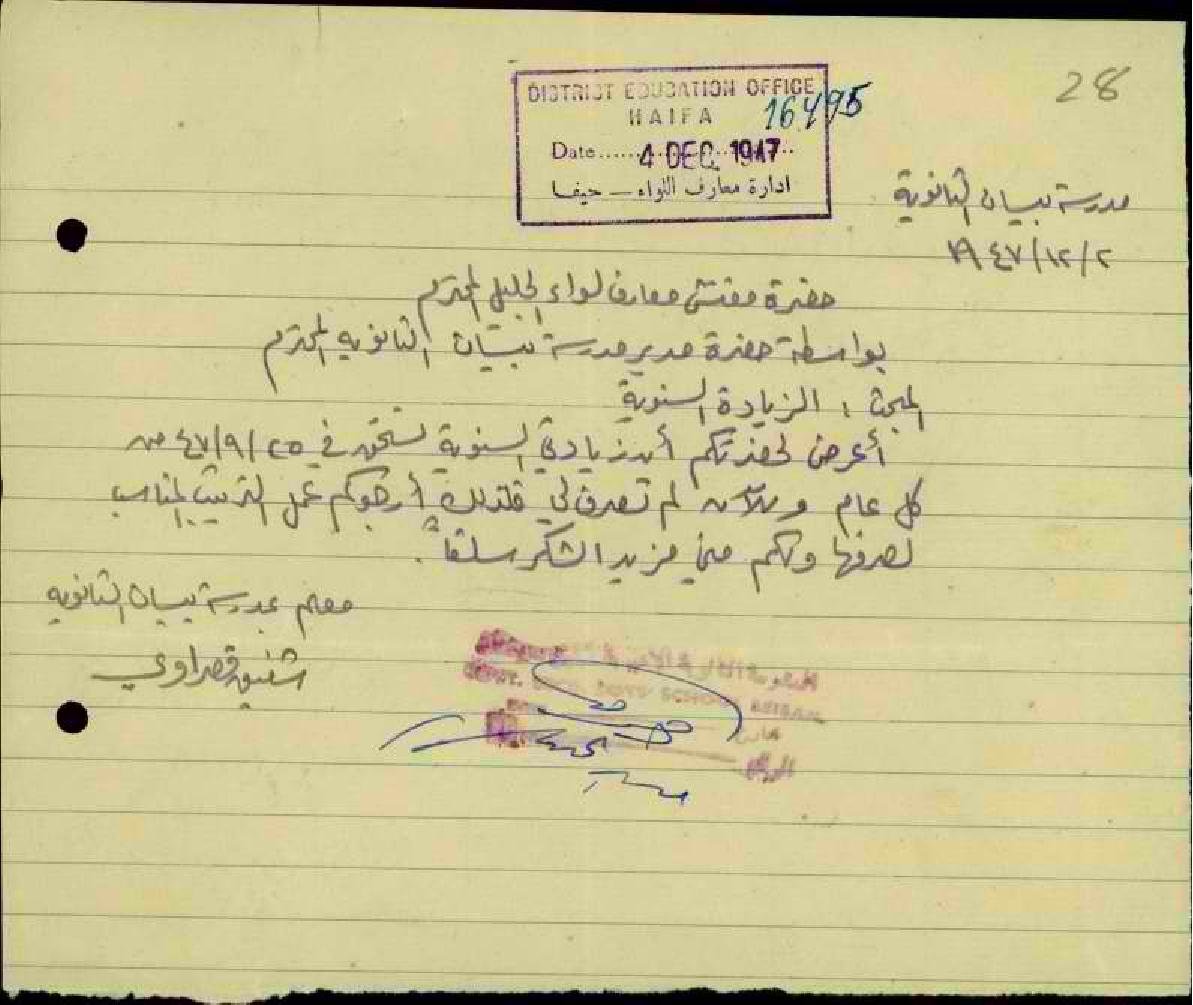 28
DISTRICT EDUCATION OFFICE
HAIFA
16495
Date...... 4 DEC 1947..
ادارة معارف اللواء — حيفا
مدرسة بيسان الثانوية
١٩٤٧/١٢/٢
حضرة مفتش معارف لواء الجليل المحترم
بواسطة حضرة مدير مدرسة بيسان الثانويه المحترم
المبحث : الزيادة السنوية
أعرض لحضرتكم أن زيادتي السنوية تستحق في ٤٧/٩/٢٥ من
كل عام وللآن لم تصرف لي فلذلك أرجوكم عمل الترتيب المناسب
لصرفها ولكم مني مزيد الشكر سلفاً .
معلم بمدرسة بيسان الثانويه
شفيق قصراوي
GOVT. BOYS SCHOOL BEISAN